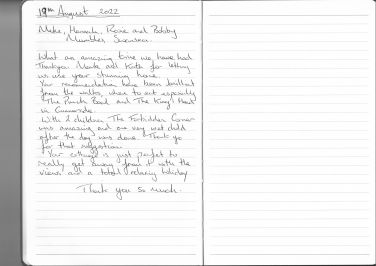 19th August 2022
Mike, Hannah, Rosie and Bobby
Mumbles Swansea.
What an amazing time we have had.
Thankyou Mark and Kate for letting
us use your stunning home.
Your recommendation have been brilliant
from the walks, where to eat especially
"The Punch Bowl and The King's Head"
in
With 2 children The Forbidden Corner
was amazing and one very wet child
after the day was done. Thank you
for that suggestion.
Your cottage is just perfect to
really get away from it with the
views and a total relaxing holiday
Thank you so much.